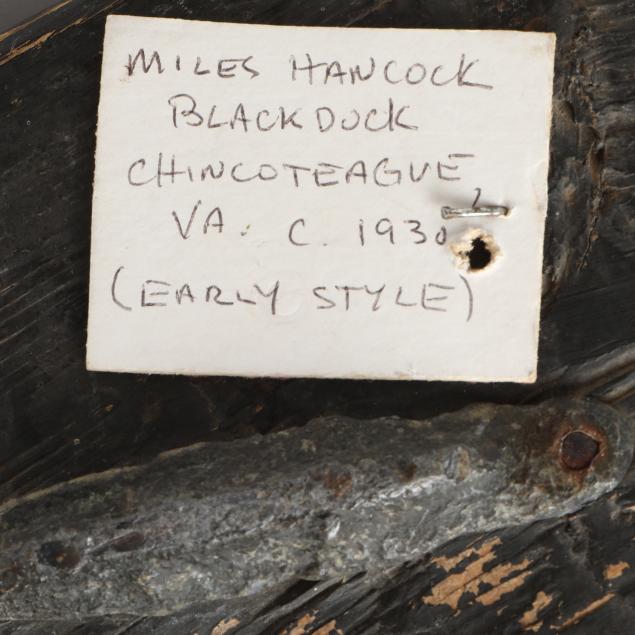 MILES HANCOCK
BLACKDUCK
CHINCOTEAGUE,
VA. C. 1930
(EARLY STYLE)